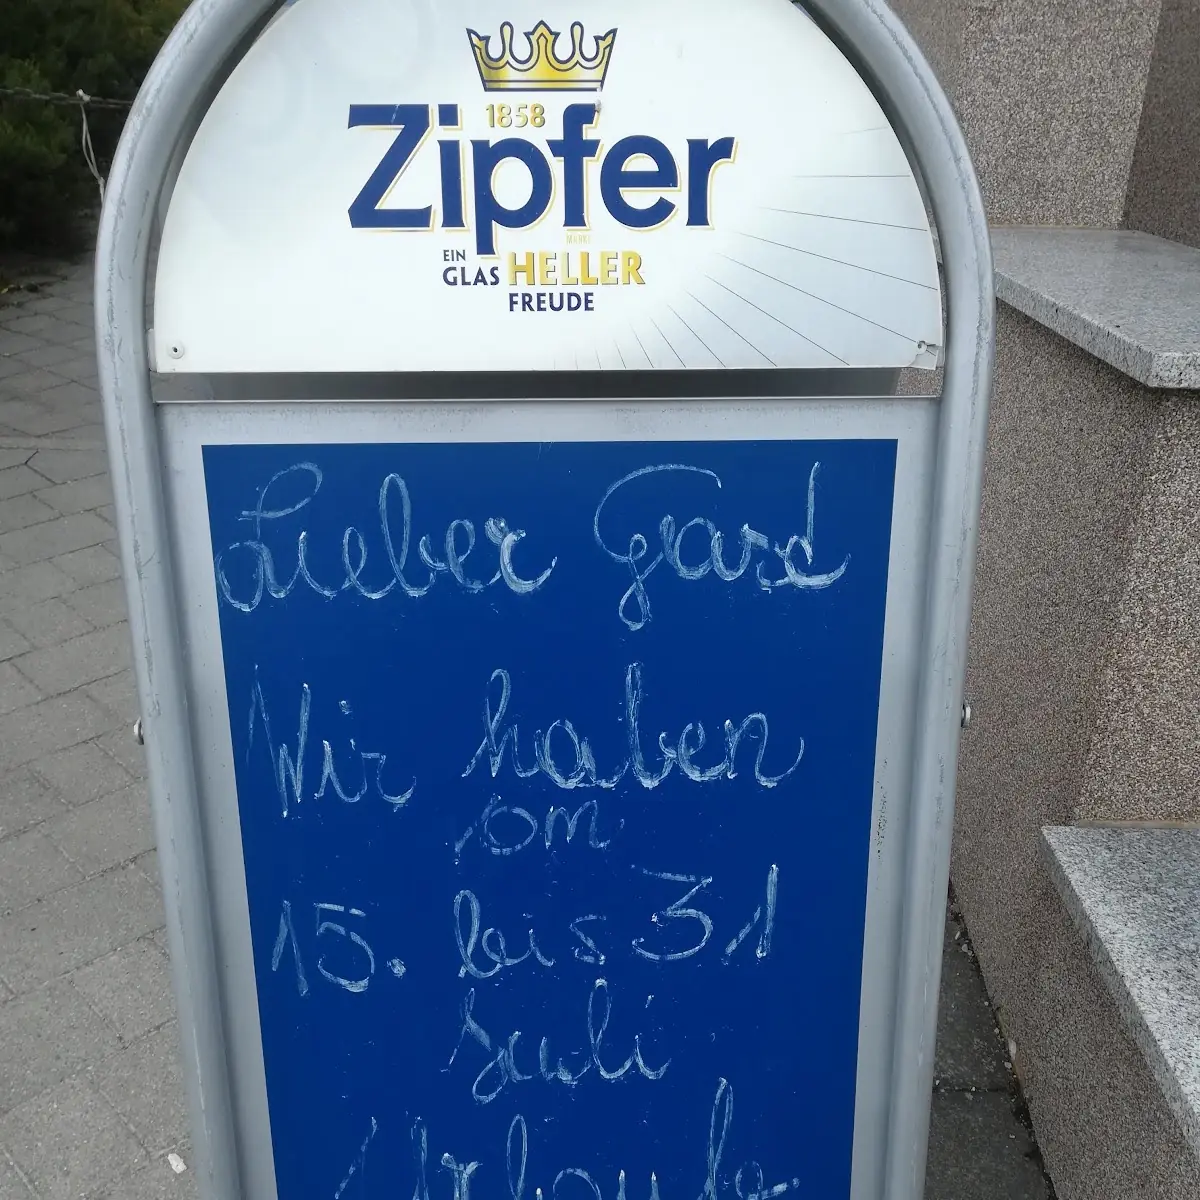 1858
Zipfer
MÄRZEN
EIN
GLAS HELLER
FREUDE
Lieber Gard
Wir haben
om
15. bis 31
Juli
Urlaub